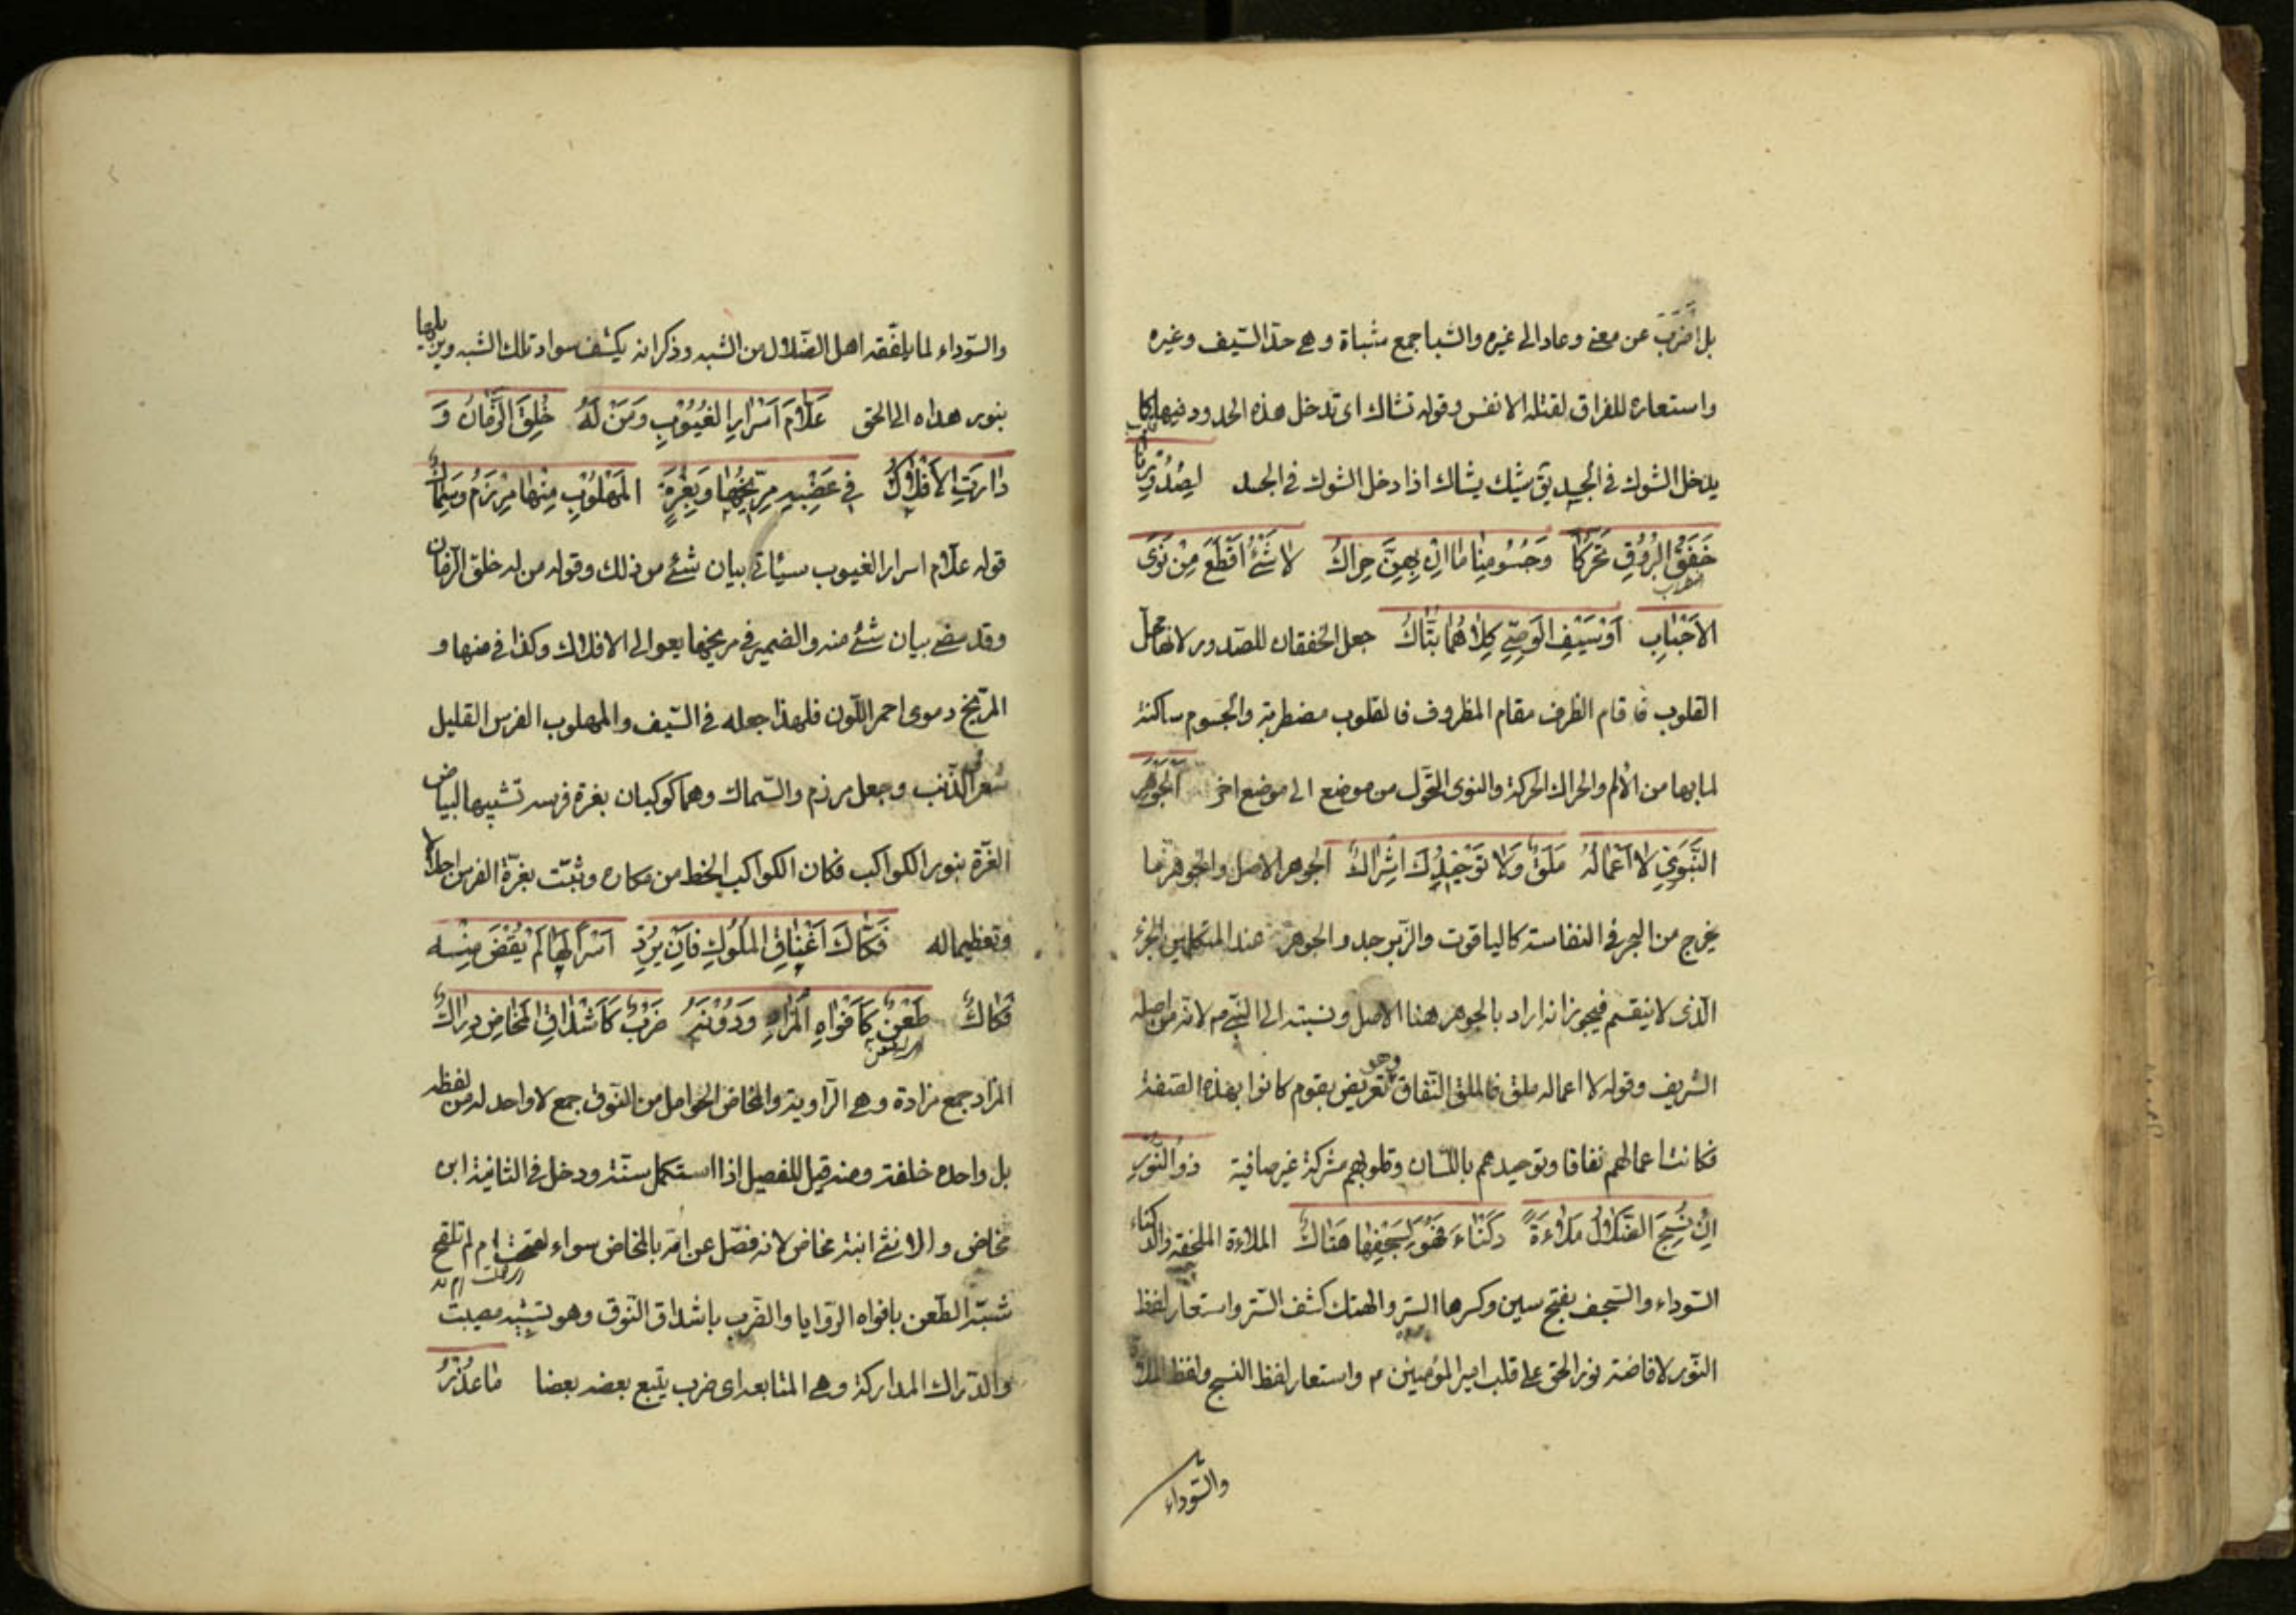 بل اضرب عن معنى وعاد الى غيره والشبا جمع شباة وهى حد السّيف وغيره
واستعاره للفراق لقتله الانفس وقوله تشاك اى تدخل هذه الحدود فيها كما
يدخل الشوك فى الجسد يق شيك يشاك اذا دخل الشوك فى الجسد لصُدُورِنَا
خَفَقُ البُرُوقِ تَحَرُّكًا وَجُسُومِنَا مَا اِنْ بِهِنَّ حِرَاكُ لا شَئَ اَقْطَعُ مِنْ نَوَى
الاَحْبَابِ اَوْ سَيْفِ الوَصِىِّ كِلاَهُمَا بَتَّاكُ جعل الخفقان للصّدور لانها محل
القلوب فاقام الظرف مقام المظروف فالقلوب مضطربة والجسوم ساكنة
لما بها من الألم والحراك الحركة والنوى التحّول من موضع الى موضع اخر الجَوْهَرُ
النَّبَوِىُّ لا اَعْمَالُهُ مَلَقٌ وَلا تَوْحِيْدُهُ اِشْرَاكُ الجوهر الاصل والجوهر ما
يخرج من البحر فى النفاسة كالياقوت والزّبرجد والجوهر عند المتكلمين الجزء
الّذى لا ينقسم فيجوز انه اراد بالجوهر هنا الاصل ونسبته الى النّبى م لانّه من اصله
الشريف وقوله لا اعماله ملق فالملق النّفاق وهو تعريض بقوم كانوا بهذه الصّفة
فكانت اعمالهم نفاقا وتوحيدهم باللّسان وقلوبهم مشركة غير صافية ذو النُّوْرِ
اِنْ نَسَجَ الضَّلاَلُ مُلاَءَةً دَكْنَاءَ فَهُوَ لِسَجْفِهَا هَتَّاكُ الملاءة الملحفة والدّكناء
السّوداء والسّجف بفتح سين وكسرها السّتر والهتك كشف السّتر واستعار لفظ
النّور لافاضة نور الحق على قلب امير المؤمنين م واستعار لفظ النسج ولفظ الملاءة
والسّوداء
والسّوداء لما يلفّقه اهل الضّلال من الشبه وذكر انه يكشف سواد تلك الشبه ويزيلها
بنور هداه الى الحق عَلاَّمُ اَسْرَارِ الغُيُوْبِ وَمَنْ لَهُ خُلِقَ الزَّمَانُ وَ
دَارَتِ الاَفْلاَكُ فى عَضْبِهِ مِرِّيْخُهَا وَبِغُرَّةِ المَهْلُوْبِ مِنْهَا مِرْزَمٌ وَسِمَاكُ
قوله علاّم اسرار الغيوب سيأتى بيان شئ من ذلك وقوله من له خلق الزمان
وقد مضى بيان شئ منه والضمير فى مريخها يعود الى الافلاك وكذا فى منها و
المرّيخ دموى احمر اللّون فلهذا جعله فى السّيف والمهلوب الفرس القليل
شعر الذّنب وجعل مرزم والسّماك وهما كوكبان بغرة فرسه تشبيها لبياض
الغرّة بنور الكواكب فكان الكواكب انحط من مكانه وثبت بغرّة الفرس اجلالا
وتعظيما له فَكَّاكُ اَعْنَاقِ المُلُوْكِ فَاِنْ يُرِدْ اَسْرًا لَهَا لَمْ يُقْضَ مِنْهُ
فَكَاكُ طَعْنٌ كَاَفْوَاهِ المَزَادِ وَدُوْنَهُ ضَرْبٌ كَاَشْدَاقِ المَخَاضِ دِرَاكُ
المزاد جمع مزادة وهى الرّاوية والمخاض الحوامل من النّوق جمع لا واحد له من لفظه
بل واحده خلفة ومنه قيل للفصيل اذا استكمل سنّة ودخل فى الثانية ابن
مخاض والانثى ابنة مخاض لانه فصّل عن امّه بالمخاض سواء لقحت ام لم تلقح
شبّه الطّعن بافواه الرّوايا والضّرب باشداق النّوق وهو تشبيه مصيب
والدّراك المداركة وهى المتابعة اى ضرب يتبع بعضه بعضا مَا عُذْرُ